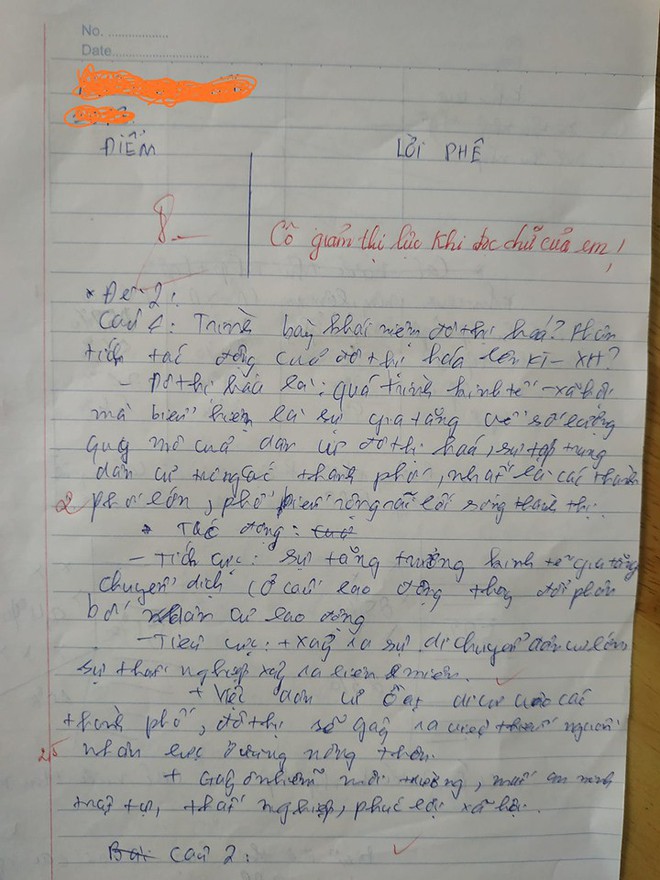 No.
Date
ĐIỂM
LỜI PHÊ
8.-
Cô giảm thị lực khi đọc chữ của em!
* Đề 2:
Câu 1: Trình bày khái niệm đô thị hoá? Phân
tích tác động của đô thị hóa lên KT - XH?
- Đô thị hoá là: quá trình kinh tế - xã hội
mà biểu hiện là sự gia tăng về số lượng
quy mô của dân cư đô thị hoá, sự tập trung
dân cư trong các thành phố, nhất là các thành
2 phố lớn, phổ biến rộng rãi lối sống thành thị.
* Tác động:
- Tích cực: sự tăng trưởng kinh tế gia tăng
chuyển dịch cơ cấu lao động thay đổi phân
bố dân cư lao động
- Tiêu cực: + xảy ra sự di chuyển dân cư lớn
sự thất nghiệp xảy ra liên miên.
+ Việc dân cư ồ ạt di cư vào các
thành phố, đô thị sẽ gây ra việc nguồn
2,5 nhân lực ở vùng nông thôn.
+ Gây ô nhiễm môi trường, mất an ninh
trật tự, thất nghiệp, phúc lợi xã hội.
Bài Câu 2: